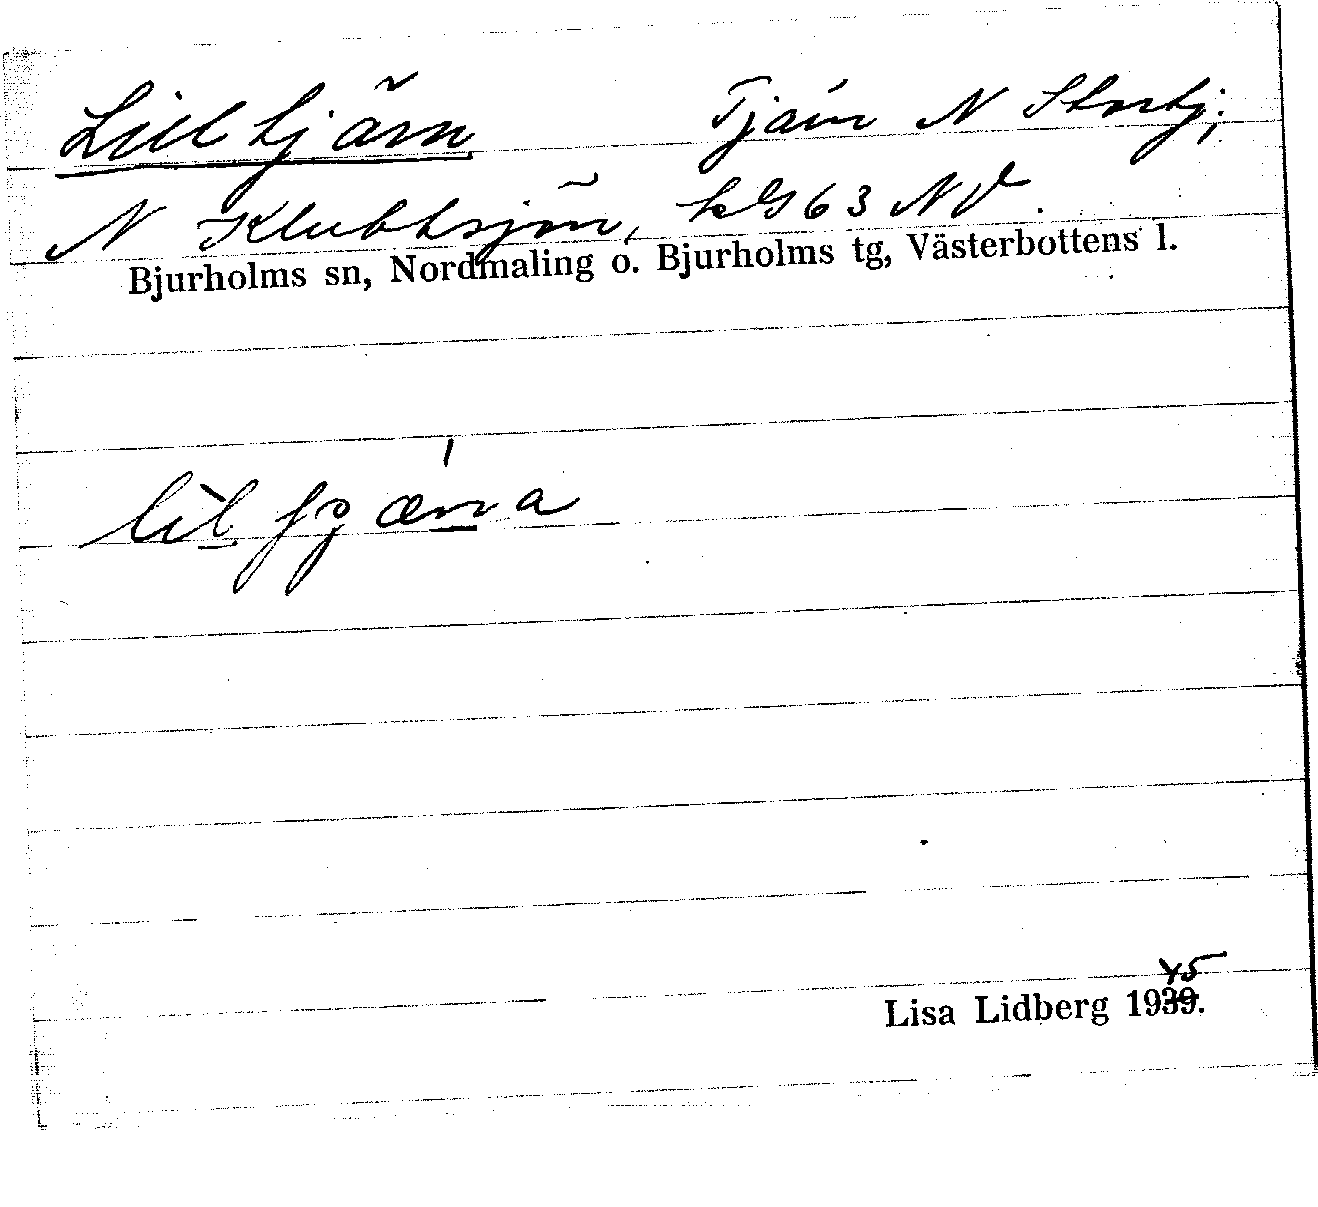 Lilltjärn Tjärn N Stortj;
N Klubbsjön, kbl 63 NV.
Bjurholms sn, Nordmaling o. Bjurholms tg, Västerbottens l.
Lisa Lidberg 1939.
45